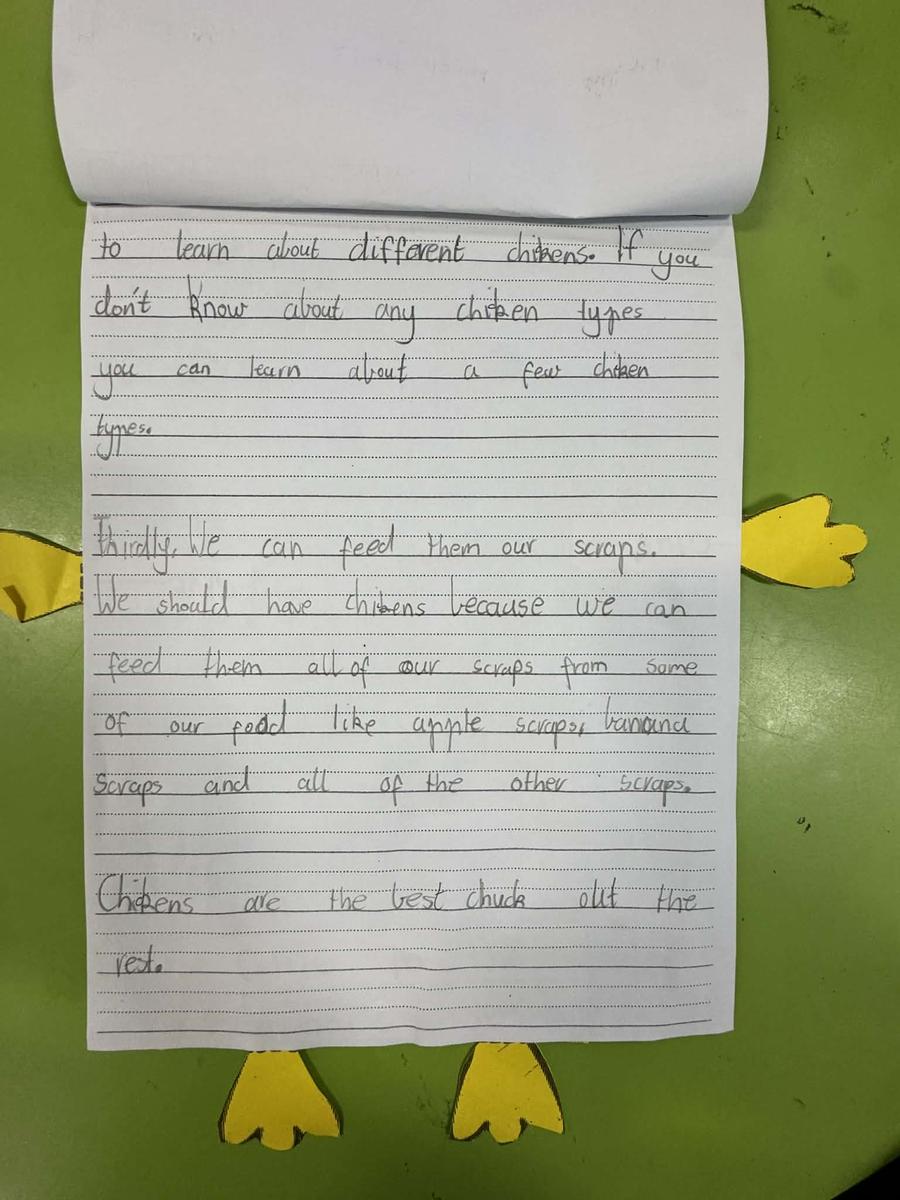 to learn about different chickens. If you
don't know about any chicken types
you can learn about a few chicken
types.
thirdly, We can feed them our scraps.
We should have chickens because we can
feed them all of our scraps from some
of our food like apple scraps, banana
scraps and all of the other scraps.
Chickens are the best chuck out the
rest.